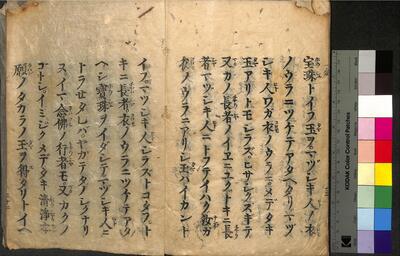 宝珠トイフ玉ヲマツシキ人ノ衣
ノウラニツケテアタヘタリマツ
シキ人ワガ衣ノウラニメデタキ
玉アリトモシラズヒサシクスキテ
又カノ長者ノイヱニユクトキニ長
者マツシキ人ニトフテイハク我ガ
衣ノウラニアリシ玉ハイカント
イフマツシキ人シラズトコタフト
キニ長者衣ノウラニツケテアタ
ヘシ宝珠ヲイダシテマツシキ人ニ
トラセタレバヤガテタノシクナリ
スイマ念佛ノ行者モ又カクノ
コトシイミシクメデタキ清浄
願ノタカラノ玉ヲ得タリトイヘ
KODAK Color Control Patches